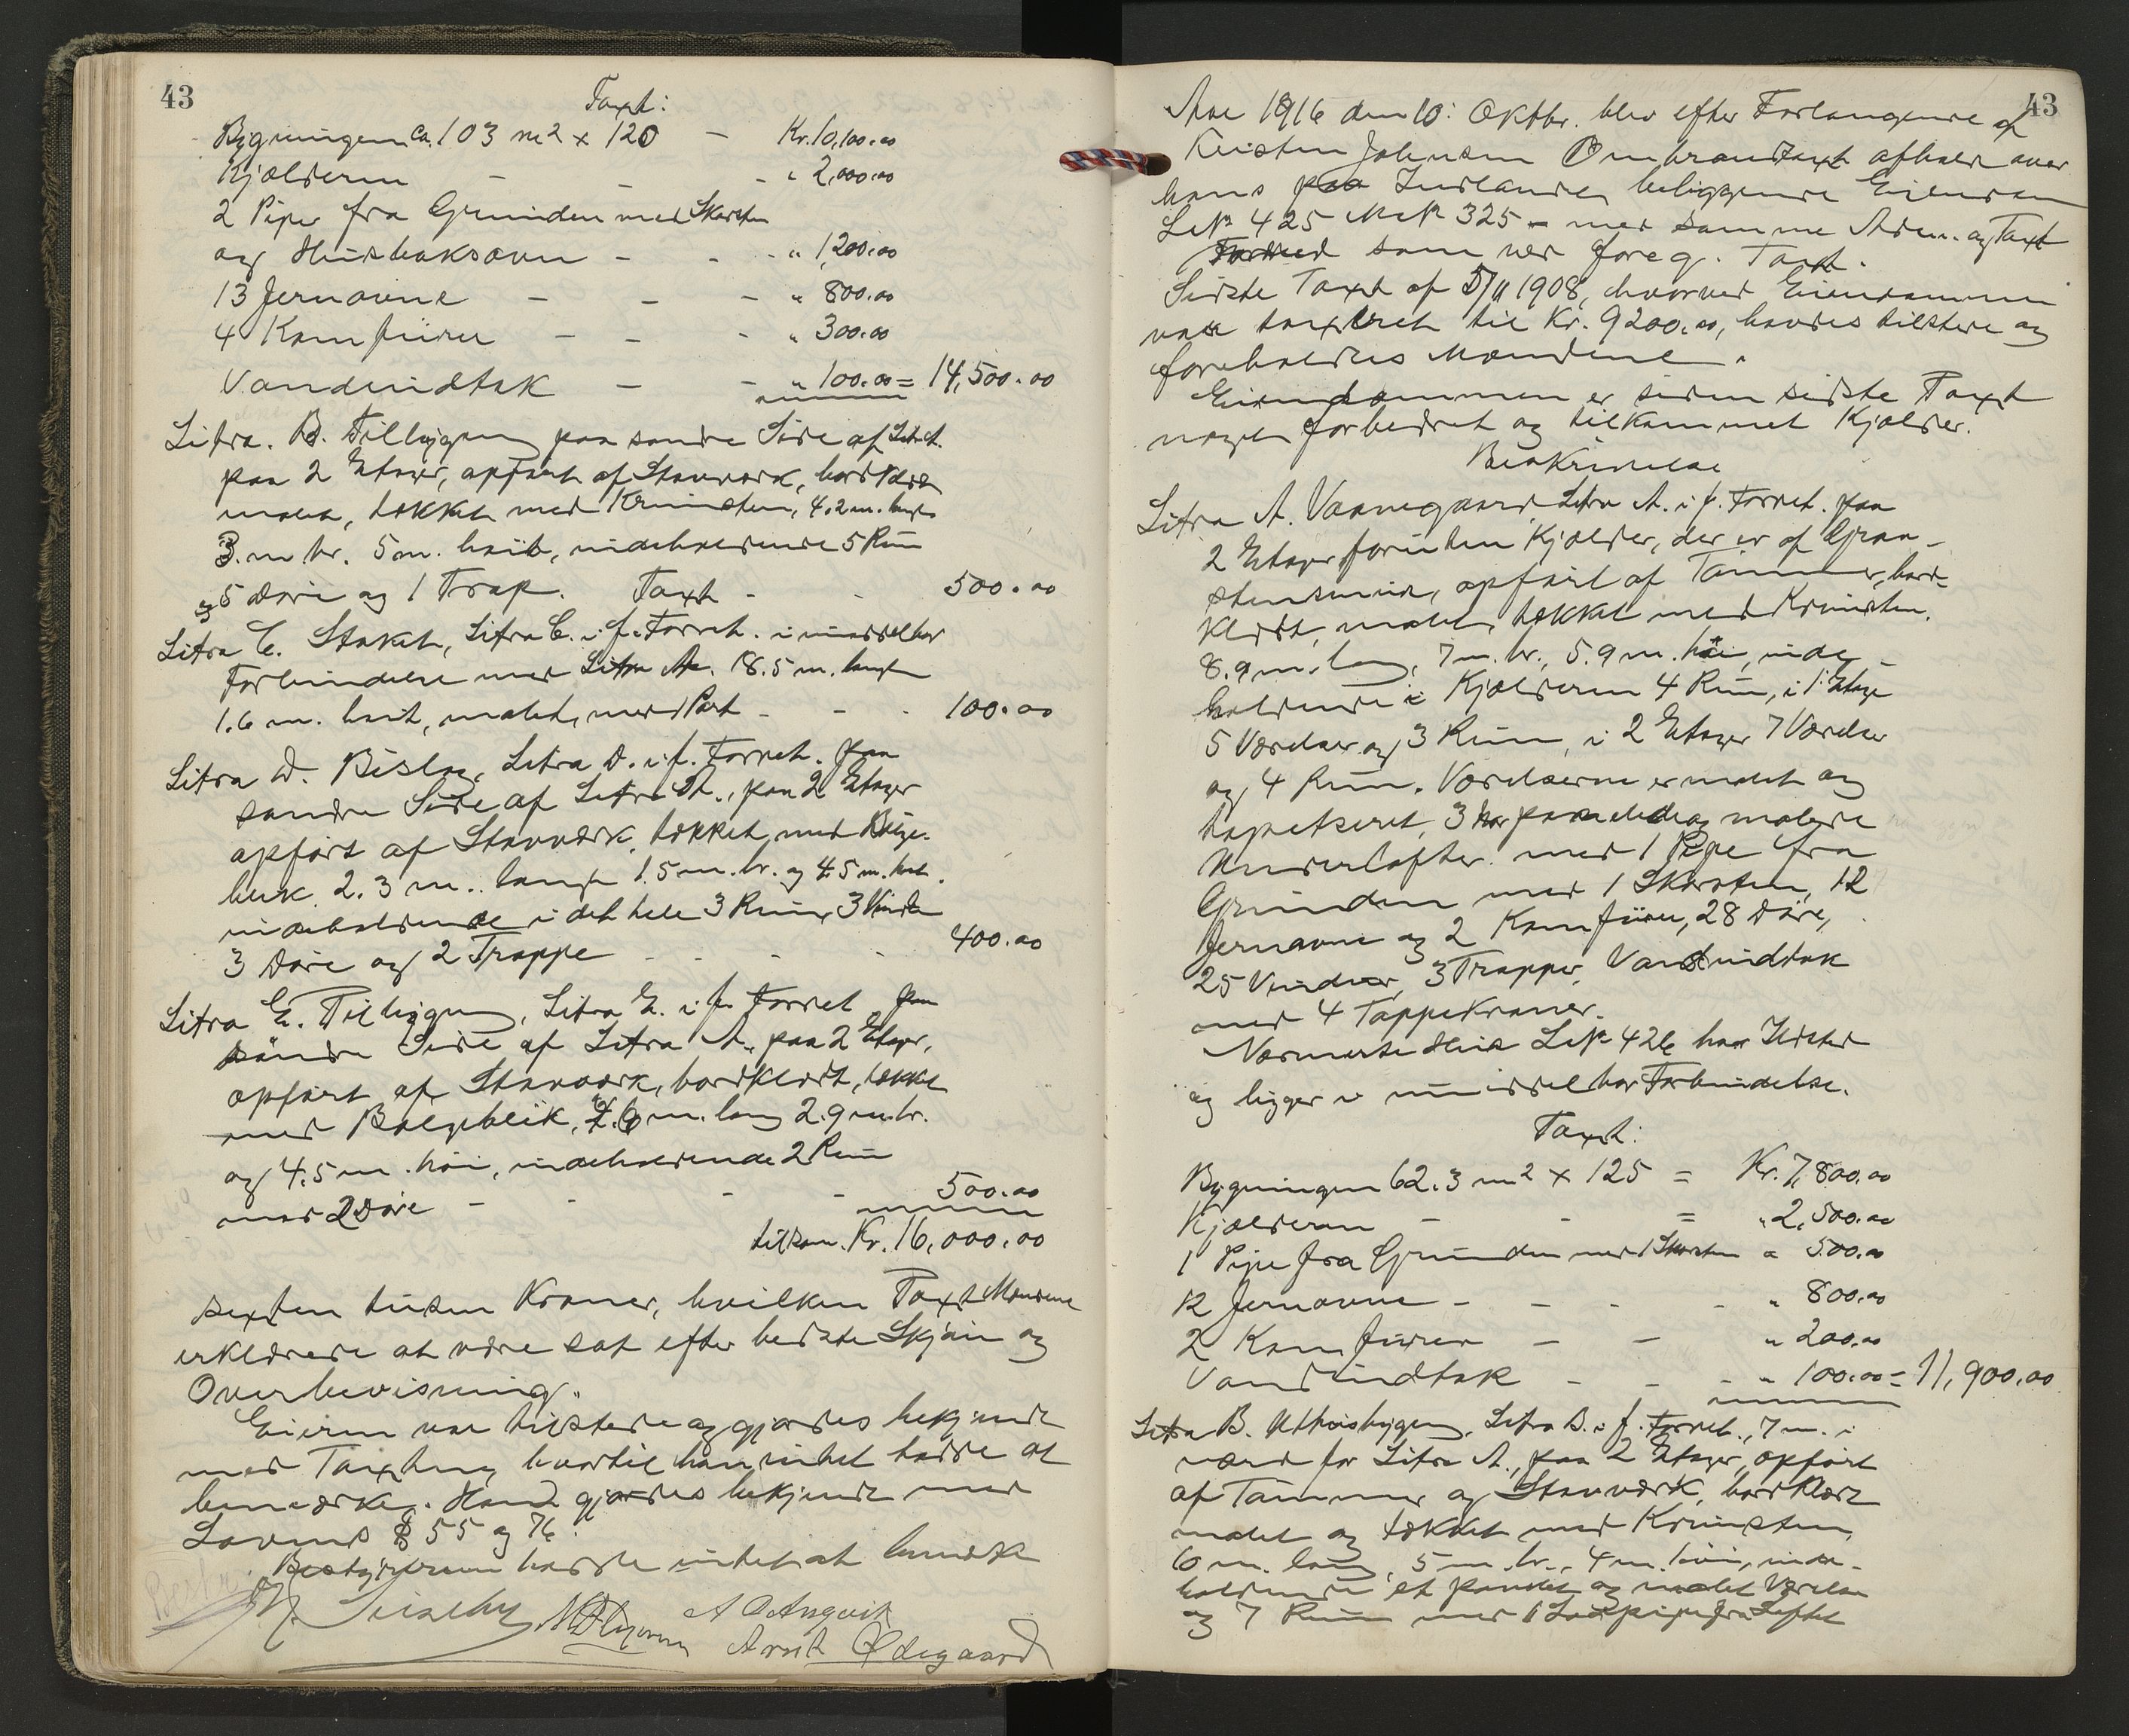 43
Taxt:
Bygningen ca. 103 m2 x 120 — Kr. 10,100.00
Kjælderen — — — " 2,000.00
2 Piper fra Grunden med Skorsten
og Husbaksovn — — — " 1,200.00
13 Jernovne — — — " 800.00
4 Komfürer — — — " 300.00
Vandindtak — — " 100.00 = 14,500.00
Litra. B. Tilbygn. paa søndre Side af Litr. A.
paa 2 Etager, opført af Stavværk, bordklædt
malet, tækket med Krumsten, 4.2 m. lang
3. m br. 5 m. høit, indeholdende 5 Rum
og 5 Døre og 1 Trap. Taxt - - 500.00
Litra C. Staket, Litra C. i f. Forret. i umiddelbar
Forbindelse med Litra A. 18.5 m. langt
1.6 m. høit, malet, med Port - - - 100.00
Litra D. Bislag, Litra D. i f. Forret. paa
søndre Side af Litra A., paa 2 Etager
opført af Stavværk, tækket med Bølge-
blik. 2.3 m. langt 1.5 m. br. og 4.5 m. høit.
indeholdende i det hele 3 Rum, 3 Vinduer
3 Døre og 2 Trappe - - - - 400.00
Litra E. Tilbygn, Litra E. i f. Forret paa
søndre Side af Litra A. paa 2 Etager,
opført af Stavværk, bordklædt, tækket
med Bølgeblik, m. lang 2.9 m. br.
og 4.5 m. høi, indeholdende 2 Rum
med 2 Døre - - - - 500.00
tilsam. Kr. 16,000.00
sexten tusen Kroner, hvilken Taxt Mændene
erklærede at være sat efter bedste Skjøn og
Overbevisning.
Eieren var tilstede og gjordes bekjendt
med Taxten, hvortil han intet havde at
bemærke. Han gjordes bekjendt med
Lovens § 55 og 76.
Bestyreren havde intet at bemærke
A O Angvik
Arnt Ødegaard
43
Aar 1916 den 10: Oktbr. blev efter Forlangende af
Kristen Johnsen Ombrandtaxt afholdt over
hans paa Indlandet beliggende Eiendom
L№ 425 M№ 325 — med samme Adm. og Taxt
som ved foreg. Taxt.
Sidste Taxt af 5/11 1908, hvorved Eiendommen
var taxteret til Kr. 9200.00, havdes tilstede og
foreholdtes Mændene.
Eiendommen er siden sidste Taxt
noget forbedret og tilkommet Kjælder.
Beskrivelse
Litra A. Vaanegaard, Litra A. i f. Forret. paa
2 Etager foruten Kjælder, der er af Graa-
stensmur, opført af Tømmer, bord-
klædt, malet, tækket med Krumsten.
8.9 m. lang, 7 m. br., 5.9 m. høi, inde-
holdende i Kjælderen 4 Rum, i 1 Etage
5 Værelser og 3 Rum, i 2 Etager 7 Værelser
og 4 Rum. Værelserne er malet og
tapetseret, 3 har panelede og malede
Underlofter. med 1 Pipe fra
Grunden med 1 Skorsten, 12
Jernovne og 2 Komfürer, 28 Døre,
25 Vinduer, 3 Trapper, Vandindtak
med 4 Tappekraner.
Nærmeste Hus L№ 426 har Ildsted
og ligger i umiddelbar Forbindelse.
Taxt:
Bygningen 62.3 m2 x 125 = Kr. 7,800.00
Kjælderen - - = " 2,500.00
1 Pipe fra Grunden med 1 Skorsten = 500.00
12 Jernovne - - - - " 800.00
2 Komfürer - - " 200.00
Vandindtak - - - " 100.00 = 11,900.00
Litra B. Uthusbygn., Litra B. i f. Forret., 7 m. i
nord for Litra A., paa 2 Etager, opført
af Tømmer og Stavværk, bordklædt
malet og tækket med Krumsten,
6 m. lang, 5 m. br., 4 m. høi, inde-
holdende et panelet og malet Værelse
og 7 Rum med 1 pipe fra Loftet